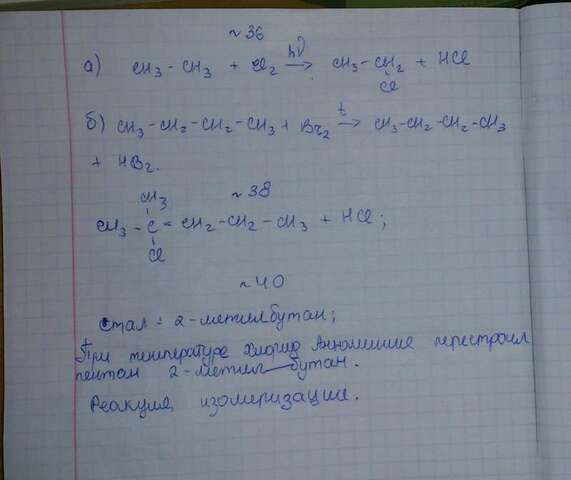 ~36
а) CH3 - CH3 + Cl2 hν → CH3 - CH2 + HCl
Cl
б) CH3 - CH2 - CH2 - CH3 + Br2 t → CH3 - CH2 - CH2 - CH3
+ HBr.
~38
CH3
CH3 - C = CH2 - CH2 - CH3 + HCl;
Cl
~40
стал = 2-метилбутан;
При температуре хлорид Аллюминие перестроил
пентан 2-метил-бутан.
Реакция изомеризации.